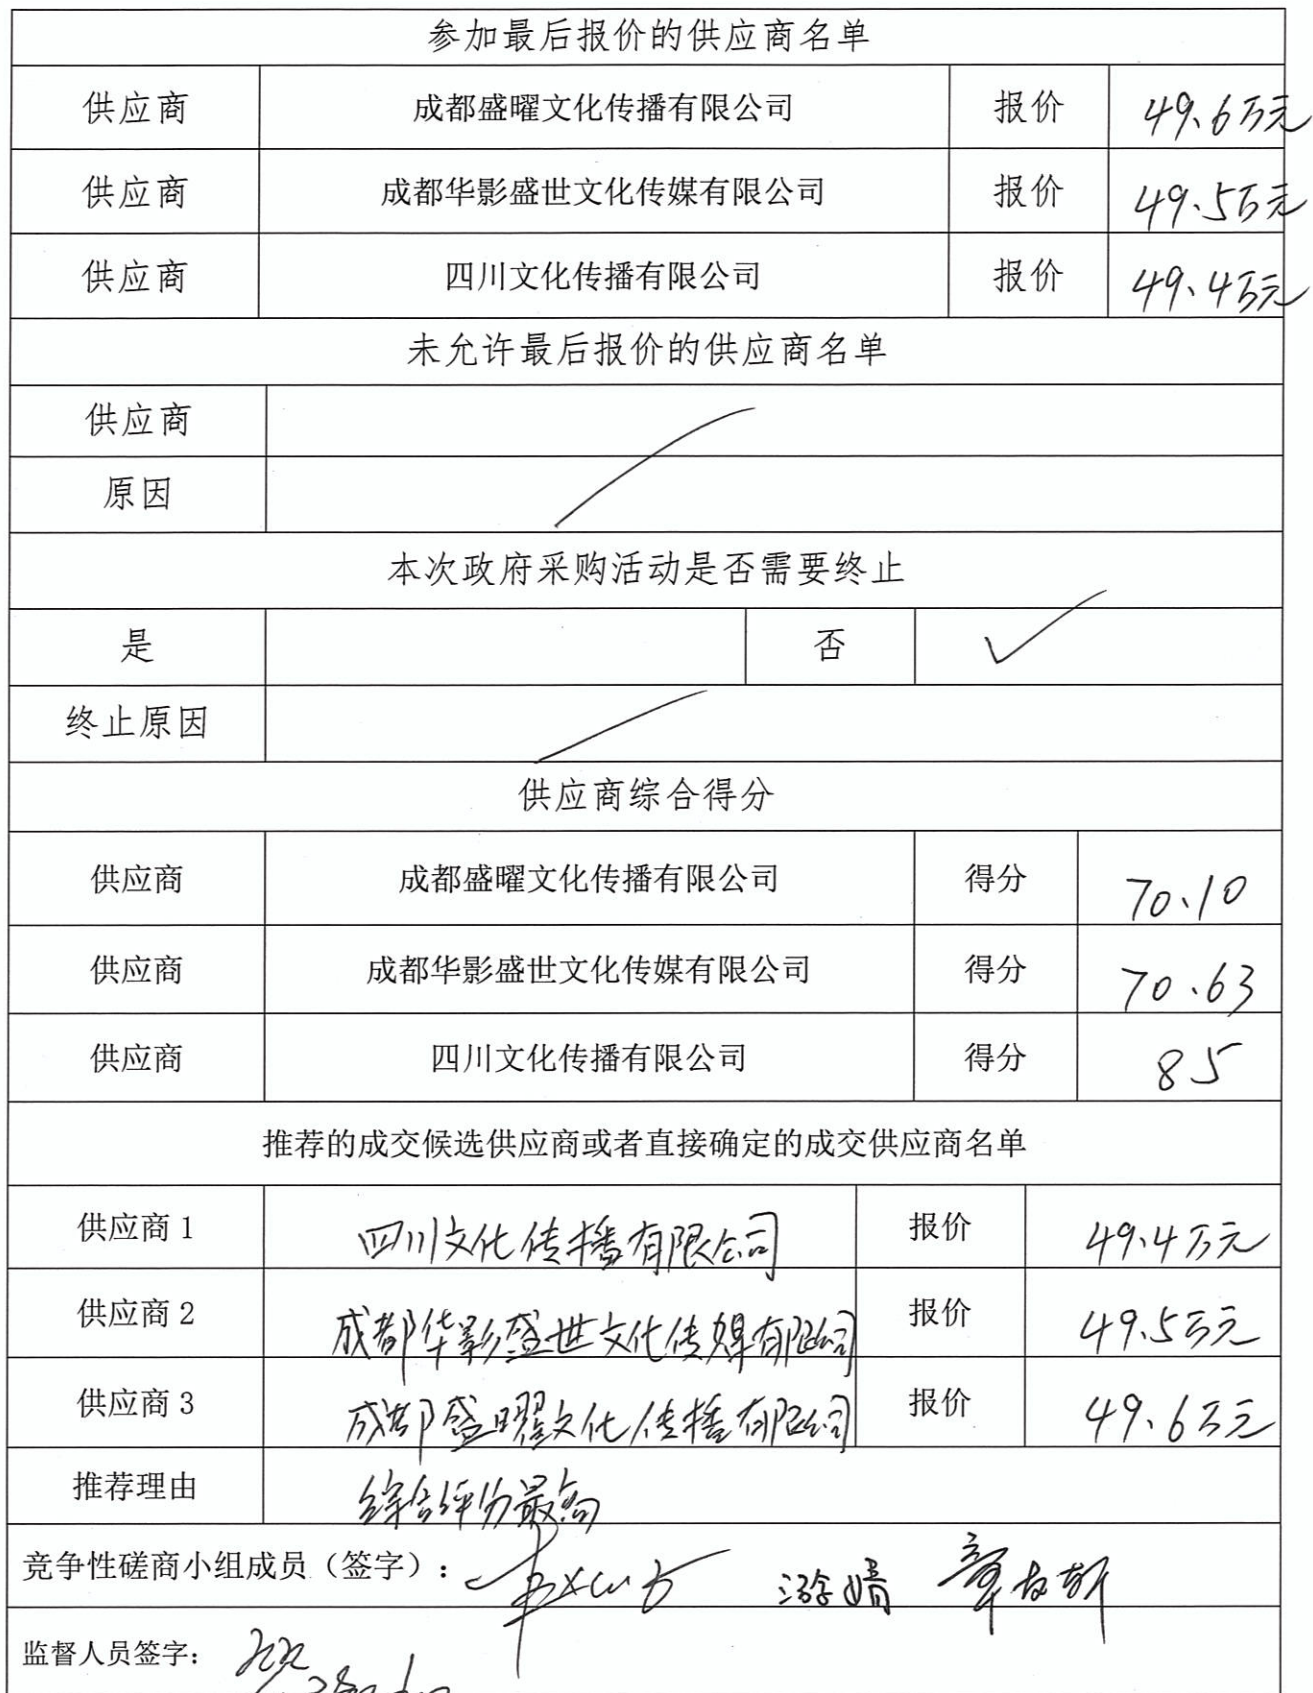 参加最后报价的供应商名单
供应商 成都盛曜文化传播有限公司 报价 49.6万元
供应商 成都华影盛世文化传媒有限公司 报价 49.5万元
供应商 四川文化传播有限公司 报价 49.4万元
未允许最后报价的供应商名单
供应商
原因
本次政府采购活动是否需要终止
是 否 ✓
终止原因
供应商综合得分
供应商 成都盛曜文化传播有限公司 得分 70.10
供应商 成都华影盛世文化传媒有限公司 得分 70.63
供应商 四川文化传播有限公司 得分 85
推荐的成交候选供应商或者直接确定的成交供应商名单
供应商1 四川文化传播有限公司 报价 49.4万元
供应商2 成都华影盛世文化传媒有限公司 报价 49.5万元
供应商3 成都盛曜文化传播有限公司 报价 49.6万元
推荐理由 综合评分最高
竞争性磋商小组成员（签字）：
监督人员签字：